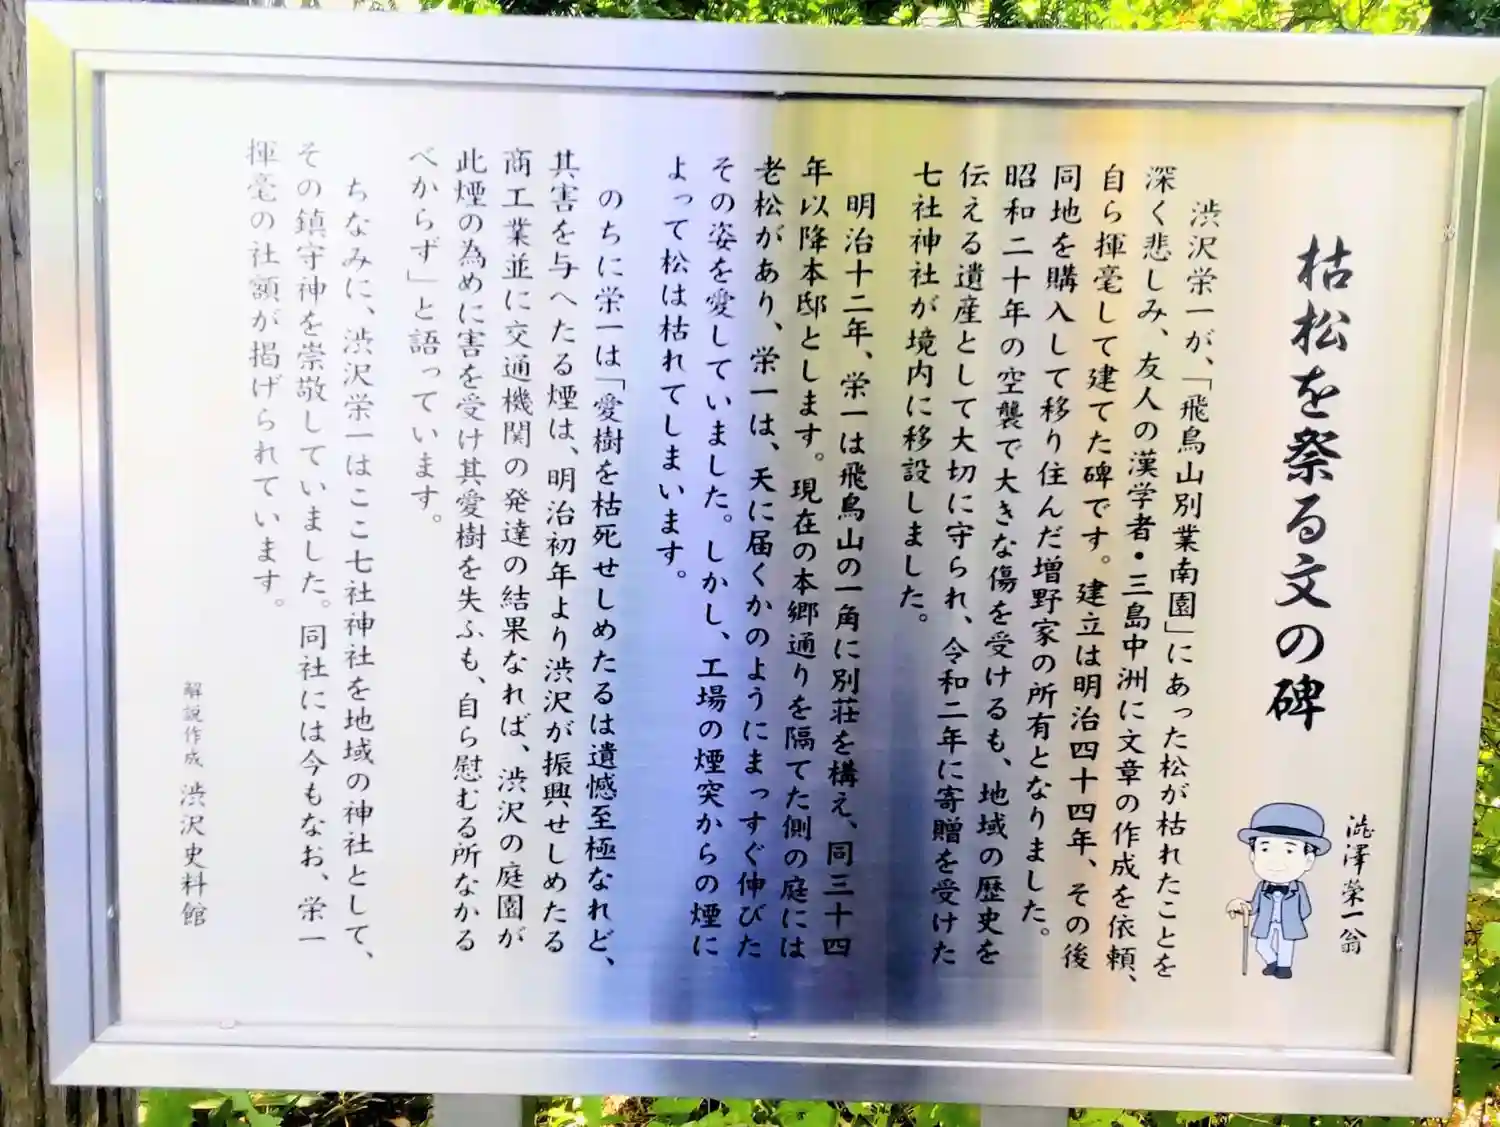 枯松を祭る文の碑
澁澤榮一翁
渋沢栄一が、「飛鳥山別業南園」にあった松が枯れたことを
深く悲しみ、友人の漢学者・三島中洲に文章の作成を依頼、
自ら揮毫して建てた碑です。建立は明治四十四年、その後
同地を購入して移り住んだ増野家の所有となりました。
昭和二十年の空襲で大きな傷を受けるも、地域の歴史を
伝える遺産として大切に守られ、令和二年に寄贈を受けた
七社神社が境内に移設しました。
明治十二年、栄一は飛鳥山の一角に別荘を構え、同三十四
年以降本邸とします。現在の本郷通りを隔てた側の庭には
老松があり、栄一は、天に届くかのようにまっすぐ伸びた
その姿を愛していました。しかし、工場の煙突からの煙に
よって松は枯れてしまいます。
のちに栄一は「愛樹を枯死せしめたるは遺憾至極なれど、
其害を与へたる煙は、明治初年より渋沢が振興せしめたる
商工業並に交通機関の発達の結果なれば、渋沢の庭園が
此煙の為めに害を受け其愛樹を失ふも、自ら慰むる所なかる
べからず」と語っています。
ちなみに、渋沢栄一はここ七社神社を地域の神社として、
その鎮守神を崇敬していました。同社には今もなお、栄一
揮毫の社額が掲げられています。
解説作成 渋沢史料館